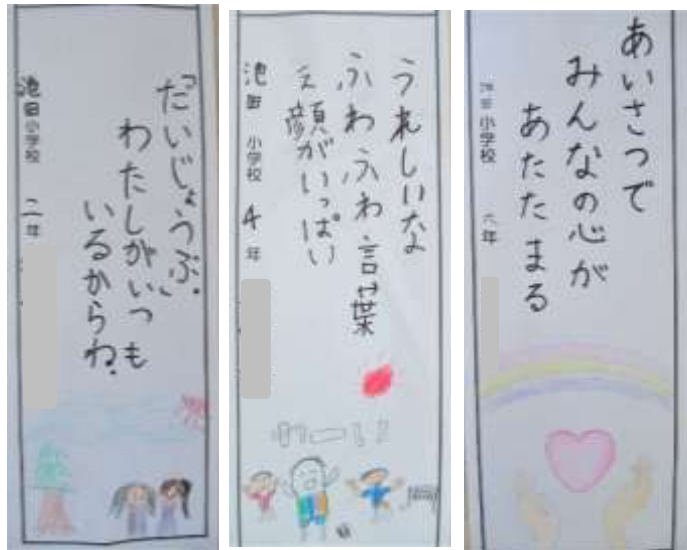 「だいじょうぶ。」
わたしがいつも
いるからね。
池田小学校 二年
うれしいな
ふわふわ言葉
え顔がいっぱい
池田小学校 4年
あいさつで
みんなの心が
あたたまる
池田小学校 六年